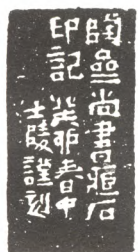 陶齋尚書藏石
印記 癸卯春中
士陵謹刻